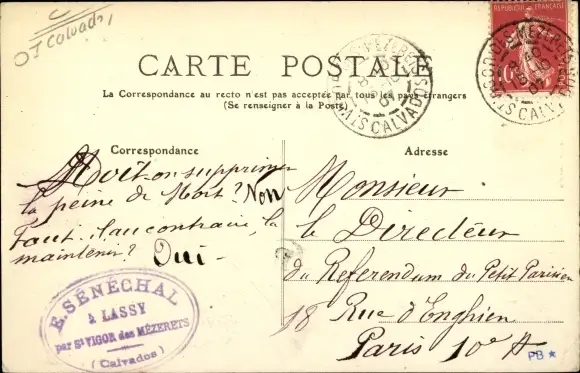 OI Calvados
CARTE POSTALE
La Correspondance au recto n'est pas acceptée par tous les pays étrangers
(Se renseigner à la Poste)
REPUBLIQUE FRANÇAISE
CALVADOS
CALVADOS
Correspondance
Doit-on supprimer
la peine de Mort? Non
Faut-il au contraire, la
maintenir? Oui -
E. SÉNÉCHAL
à LASSY
par St VIGOR des MÉZERETS
(Calvados)
Adresse
Monsieur
le Directeur
du Referendum du Petit Parisien
18 Rue d'Enghien
Paris 10e A
PB